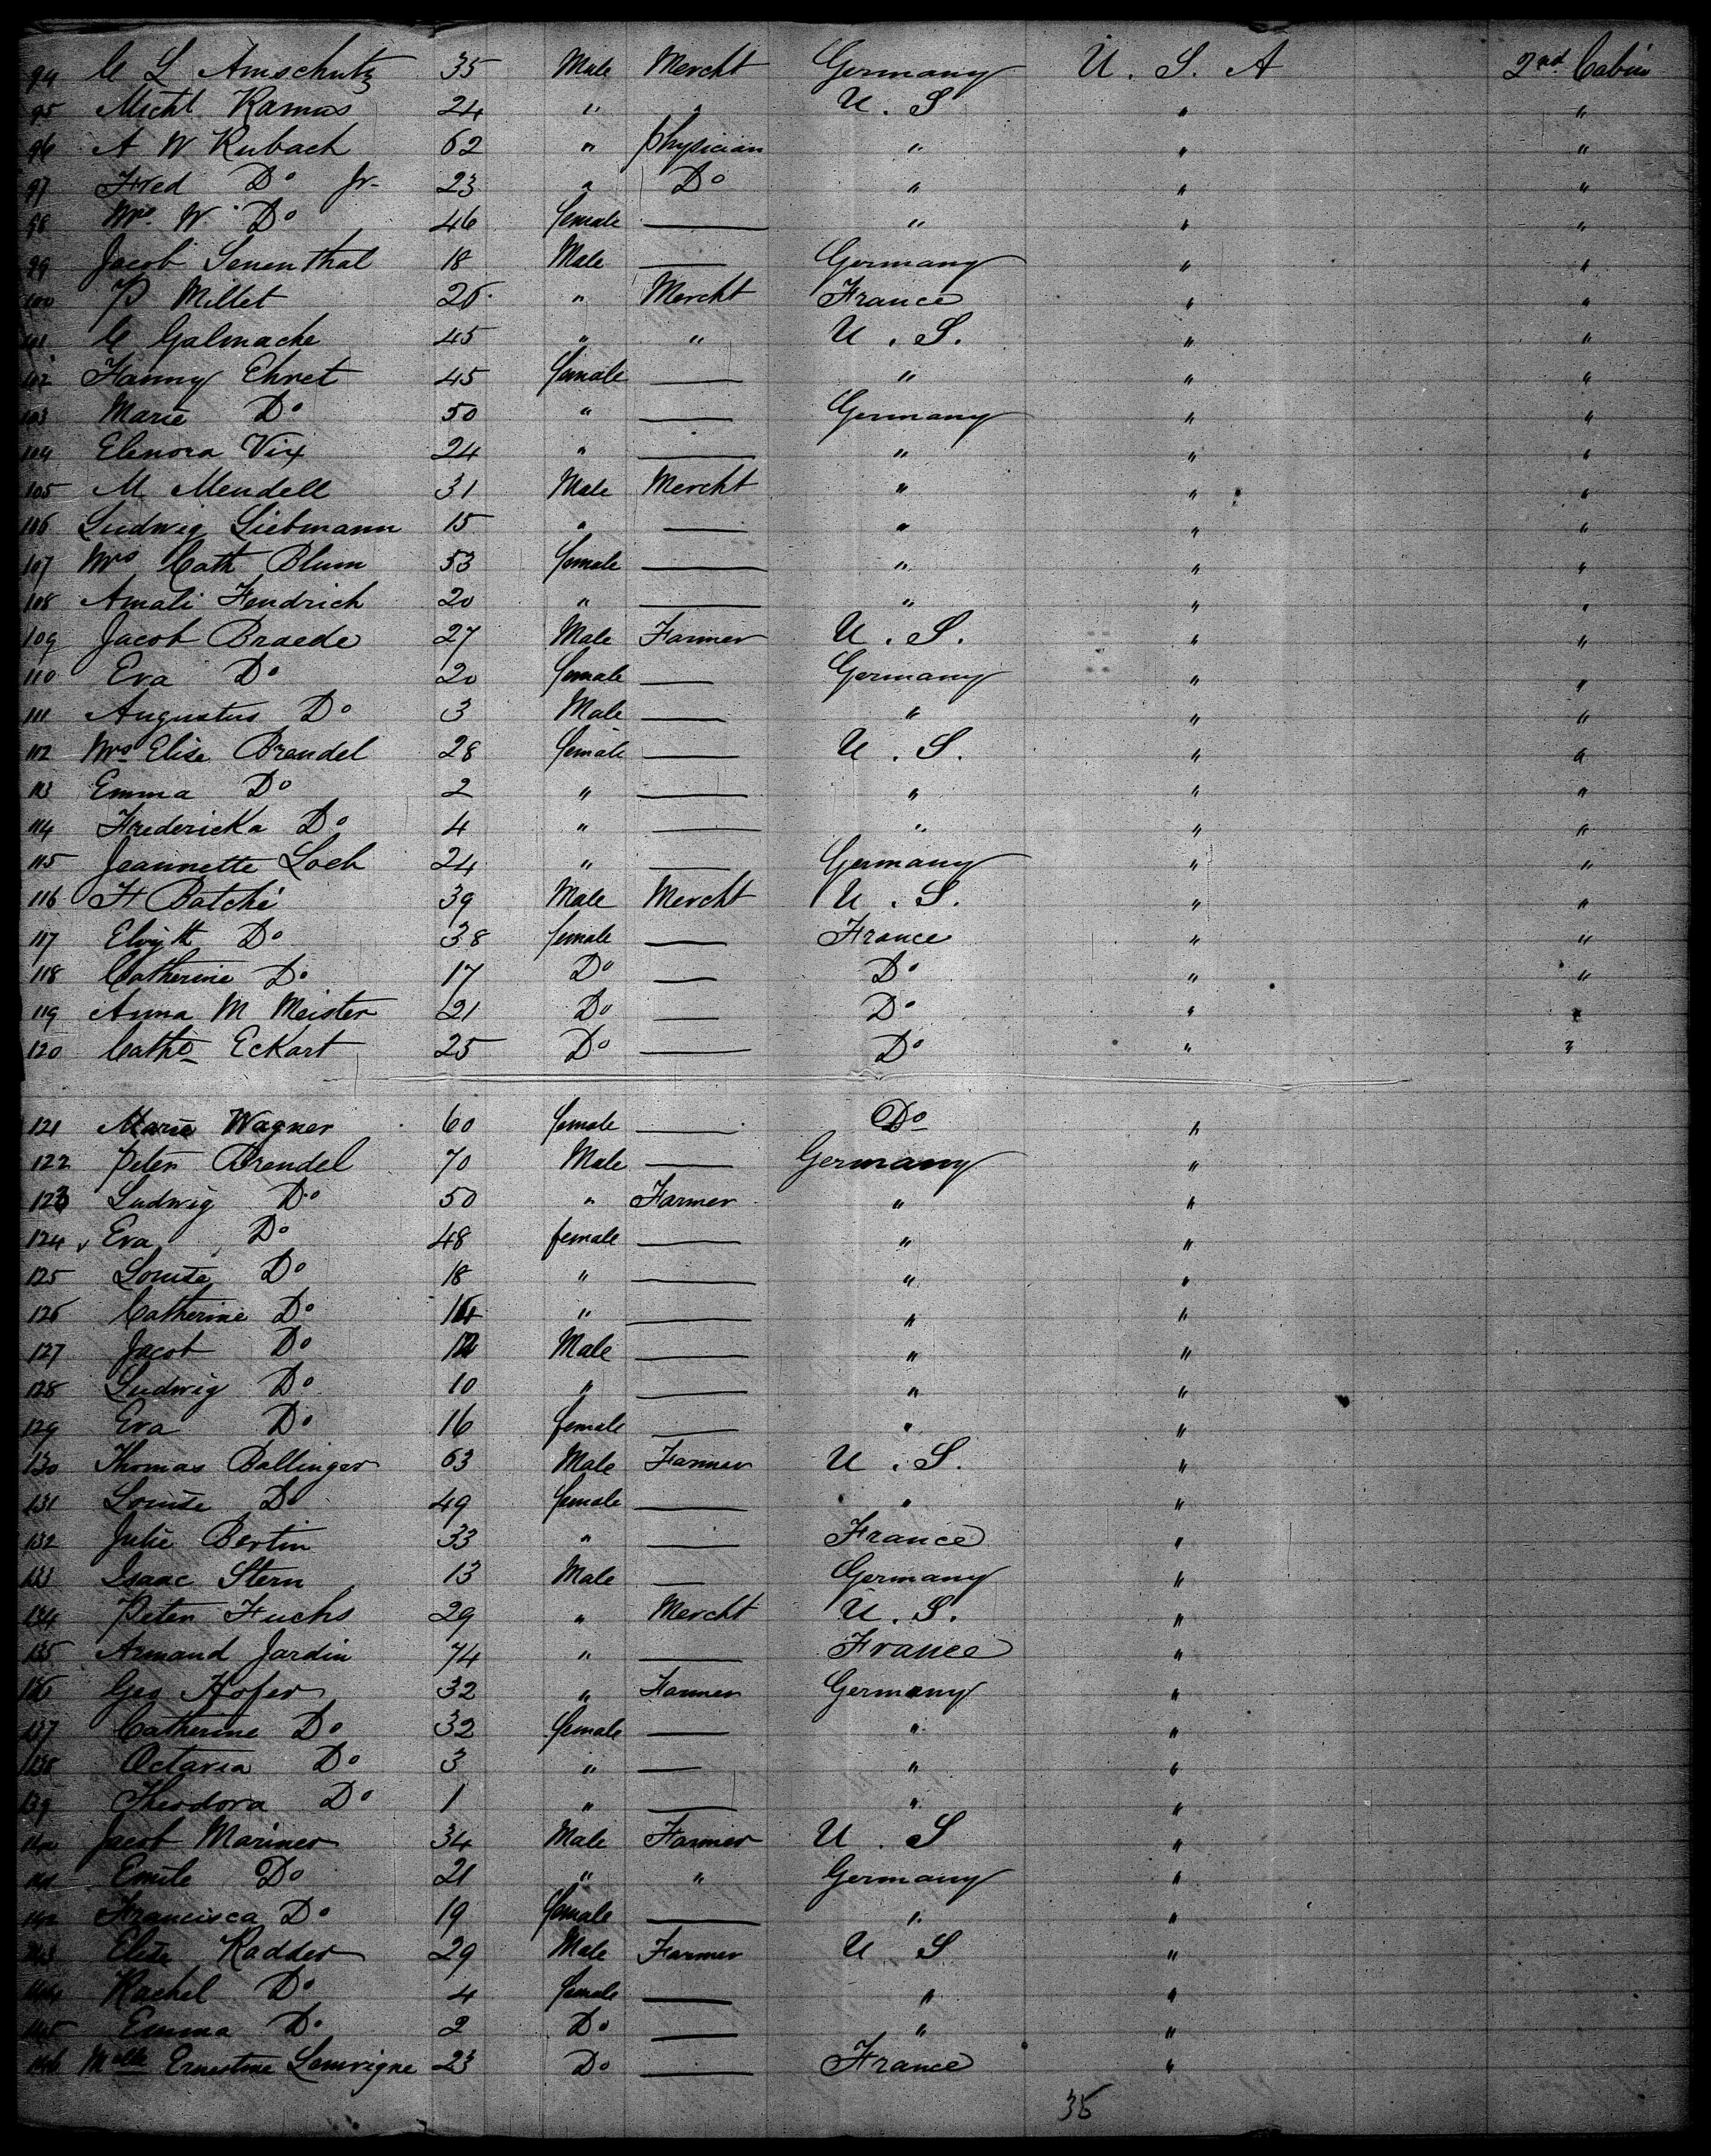 94 C L Amschutz 35 Male Mercht Germany U. S. A 2nd Cabin
95 Michl Ramus 24 " " U. S " "
96 A W Rubach 62 " physician " " "
97 Fred Do Jr 23 " Do " " "
98 Mrs W. Do 46 female — " " "
99 Jacob Senenthal 18 Male — Germany " "
100 P Millet 26 " Mercht France " "
101 C Galmache 45 " " U. S. " "
102 Fanny Ehret 45 female — " " "
103 Marie Do 50 " — Germany " "
104 Elenora Vix 24 " — " " "
105 M Mendell 31 Male Mercht " " "
106 Ludwig Liebmann 15 " — " " "
107 Mrs Cath Blum 53 female — " " "
108 Amali Fendrich 20 " — " " "
109 Jacob Braede 27 Male Farmer U. S. " "
110 Eva Do 20 female — Germany " "
111 Augustus Do 3 Male — " " "
112 Mrs Elise Brendel 28 female — U. S. " "
113 Emma Do 2 " — " " "
114 Fredericka Do 4 " — " " "
115 Jeannette Loeb 24 " — Germany " "
116 H Batché 39 Male Mercht U. S. " "
117 Do 38 female — France " "
118 Catherine Do 17 Do — Do " "
119 Anna M Meister 21 Do — Do " "
120 Catho Eckart 25 Do — Do " "
121 Marie Wagner 60 female — Do "
122 Peter Brendel 70 Male — Germany "
123 Ludwig Do 50 " Farmer " "
124 Eva Do 48 female — " "
125 Louise Do 18 " — " "
126 Catherine Do 14 " — " "
127 Jacob Do 12 Male — " "
128 Ludwig Do 10 " — " "
129 Eva Do 16 female — " "
130 Thomas Ballinger 63 Male Farmer U. S. "
131 Louise Do 49 female — " "
132 Julie Bertin 33 " — France "
133 Isaac Stern 13 Male — Germany "
134 Peter Fuchs 29 " Mercht U. S. "
135 Armand Jardin 74 " — France "
136 Geo Hofer 32 " Farmer Germany "
137 Catherine Do 32 female — " "
138 Octavia Do 3 " — " "
139 Theodora Do 1 " — " "
140 Jacob Mariner 34 Male Farmer U. S "
141 Emile Do 21 " " Germany "
142 Francisca Do 19 female — " "
143 Elise Kadder 29 Male Farmer U S "
144 Rachel Do 4 female — " "
145 Emma Do 2 Do — " "
146 Melle Ernestine Lemvigne 23 Do — France "
35